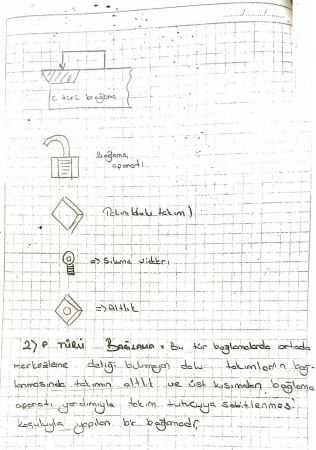 C türü bağlama
Bağlama
aparatı
Takım (dolu takım)
=> Sıkma vidası
=> Altlık
2) P TÜRÜ BAĞLAMA: Bu tür bağlamalarda ortada
merkezleme deliği bulunmayan dolu takımların bağ-
lanmasında takımın altlık ve üst kısımdan bağlama
aparatı yardımıyla takım tutucuya sabitlenmesi
koşuluyla yapılan bir bağlamadır.